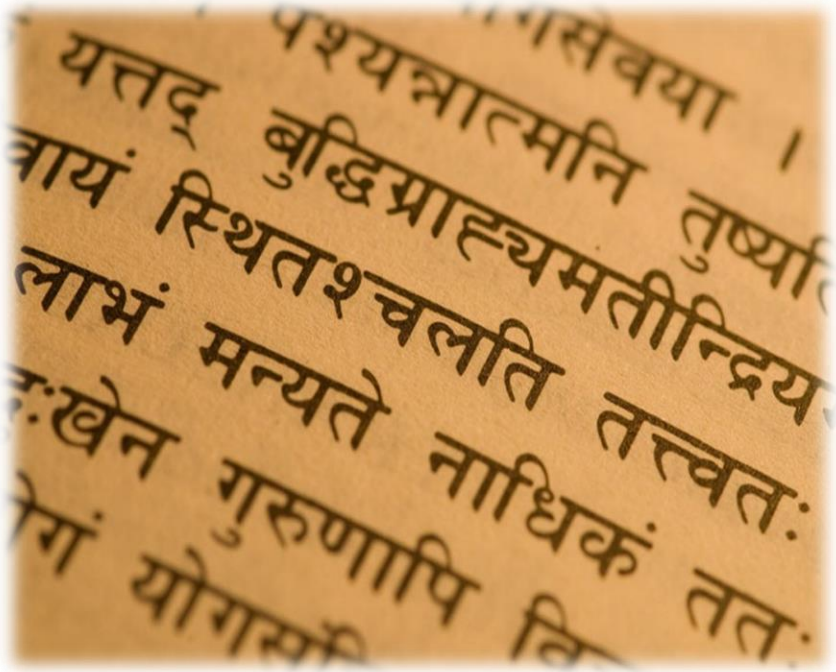 योगसेवया ।
पश्यन्नात्मनि तुष्यति
यत्तद् बुद्धिग्राह्यमतीन्द्रिय
वायं स्थितश्चलति तत्त्वतः
लाभं मन्यते नाधिकं ततः
दुःखेन गुरुणापि वि
योगं योगसं